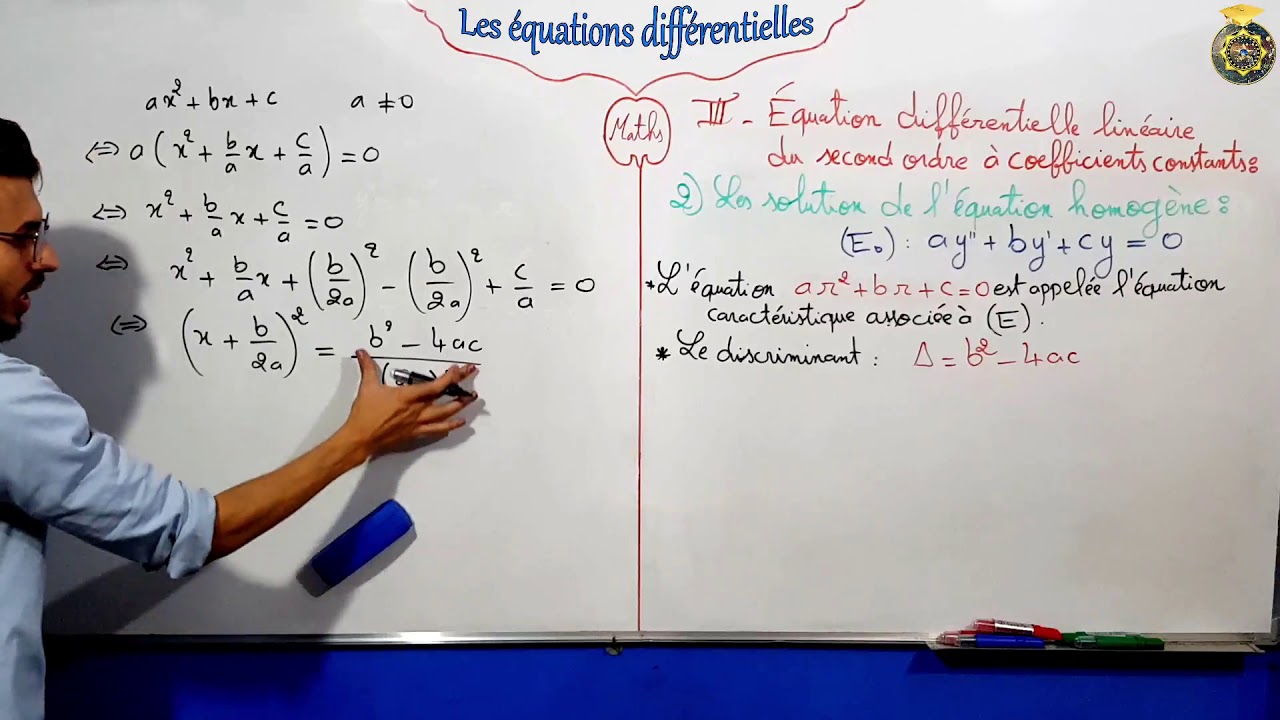 Les équations différentielles
ax² + bx + c a ≠ 0
⇔ a(x² + b/a x + c/a) = 0
⇔ x² + b/a x + c/a = 0
⇔ x² + b/a x + (b/2a)² - (b/2a)² + c/a = 0
⇔ (x + b/2a)² = b² - 4ac
Maths
III - Équation différentielle linéaire
du second ordre à coefficients constants:
2) Les solution de l'équation homogène:
(E₀): ay" + by' + cy = 0
* L'équation ar² + br + c = 0 est appelée l'équation
caractéristique associée à (E).
* Le discriminant: Δ = b² - 4ac